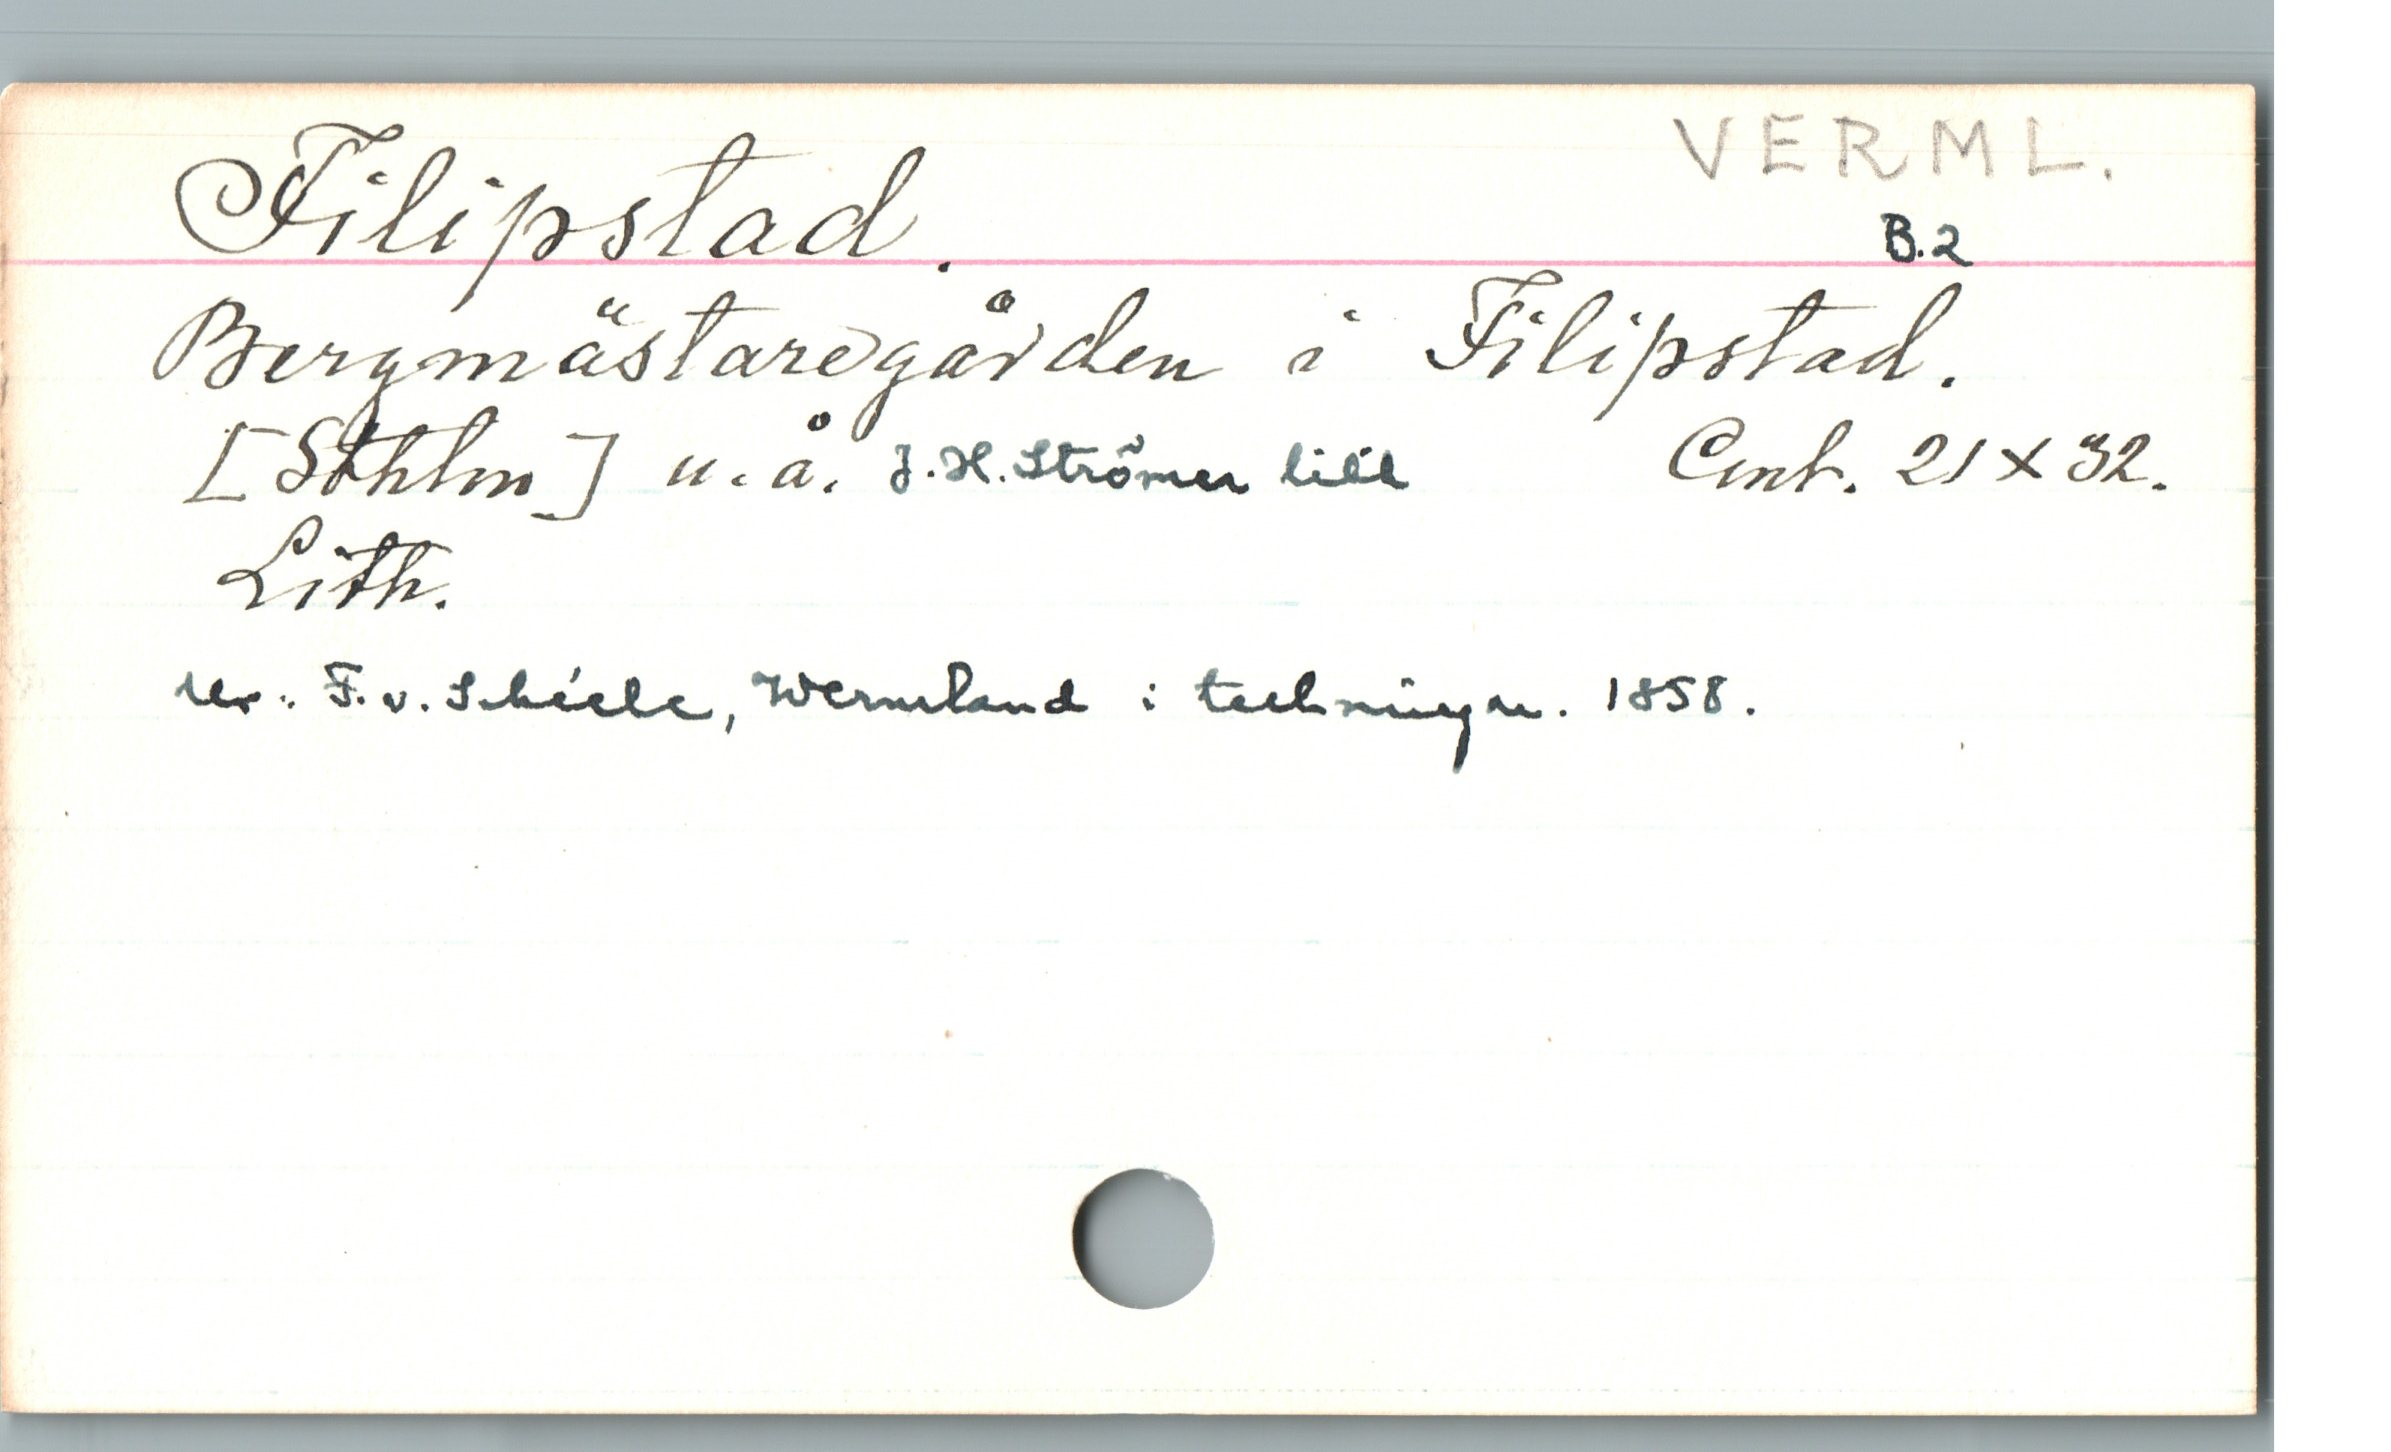 VERML.
Filipstad.
B.2
Bergmästaregården i Filipstad.
[Sthlm] u. å. J. H. Strömer lith Cent. 21 x 32.
Lith.
Ur: F. v. Schéele, Wermland i teckningar. 1858.